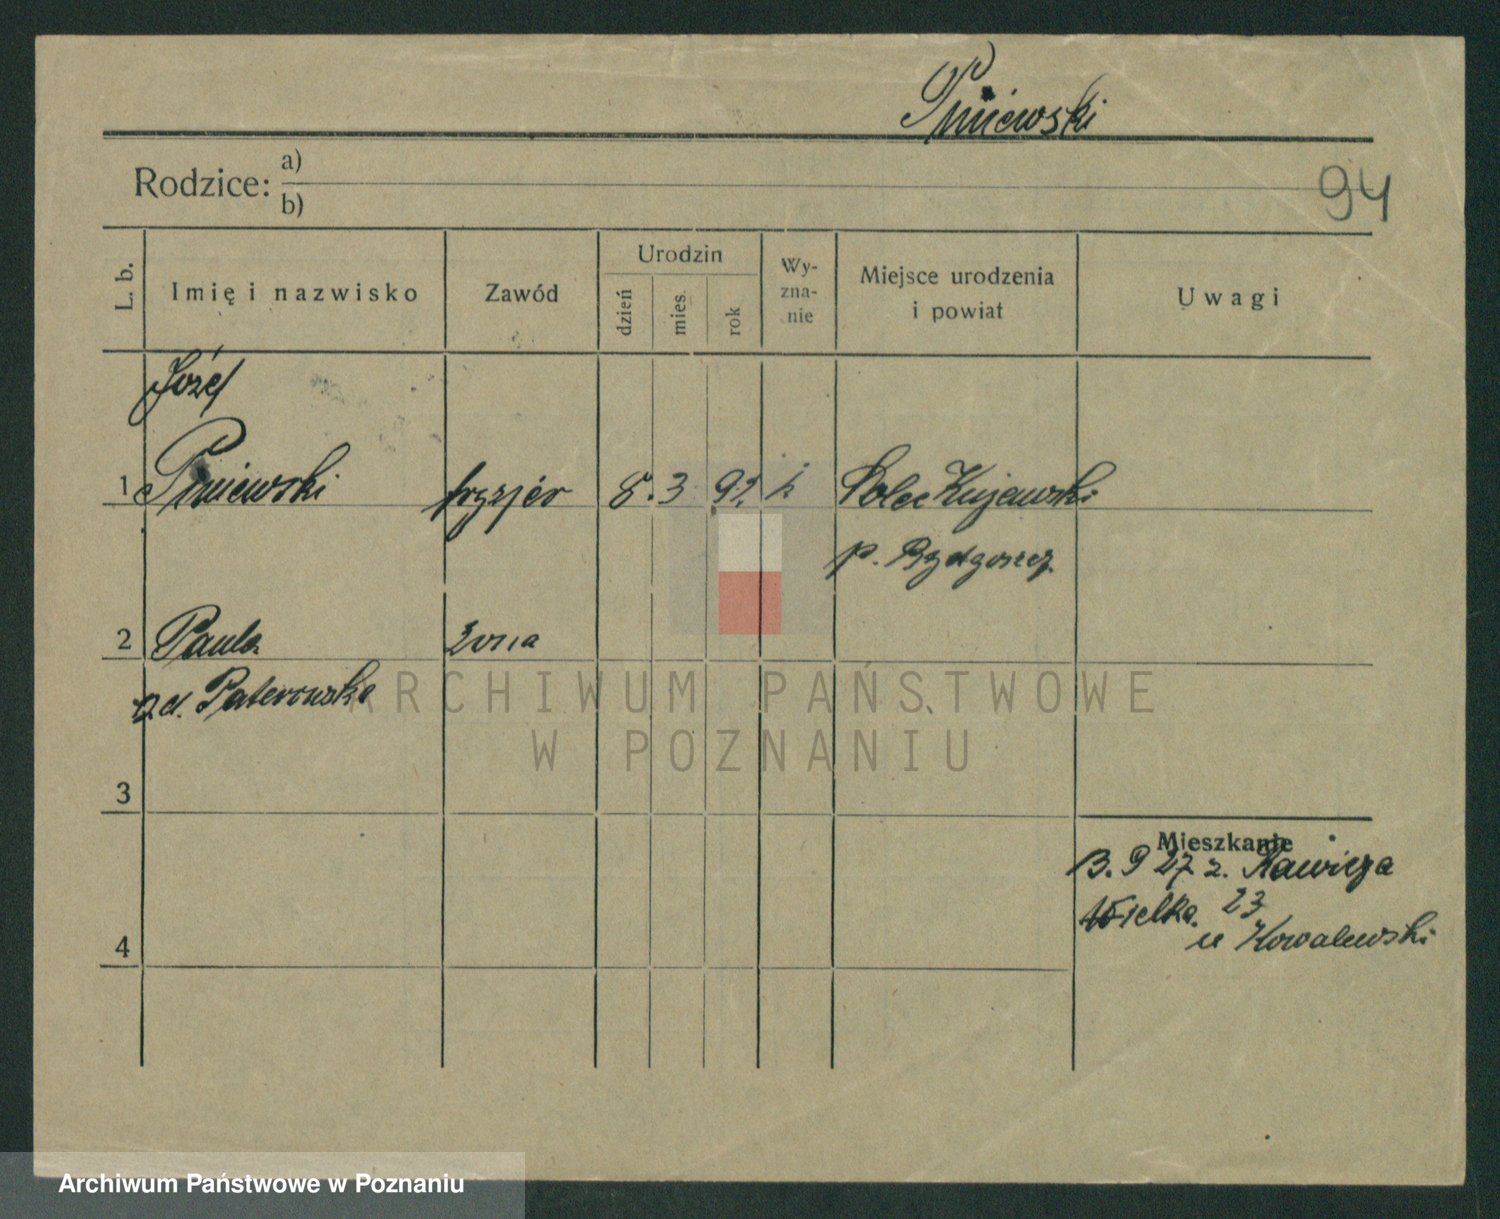 Pniewski
Rodzice: a)
b)
94
L. b. Imię i nazwisko Zawód Urodzin dzień mies. rok Wyznanie Miejsce urodzenia i powiat Uwagi
Józef
1 Pniewski fryzjer 8. 3 92. k Solec Kujawski
p. Bydgoszcz
2 Paula żona
od. Paterowska
ARCHIWUM PAŃSTWOWE
W POZNANIU
3
Mieszkanie
3. 9 27 z. Rawicza
Wielka. 23
4
u Kowalewski
Archiwum Państwowe w Poznaniu